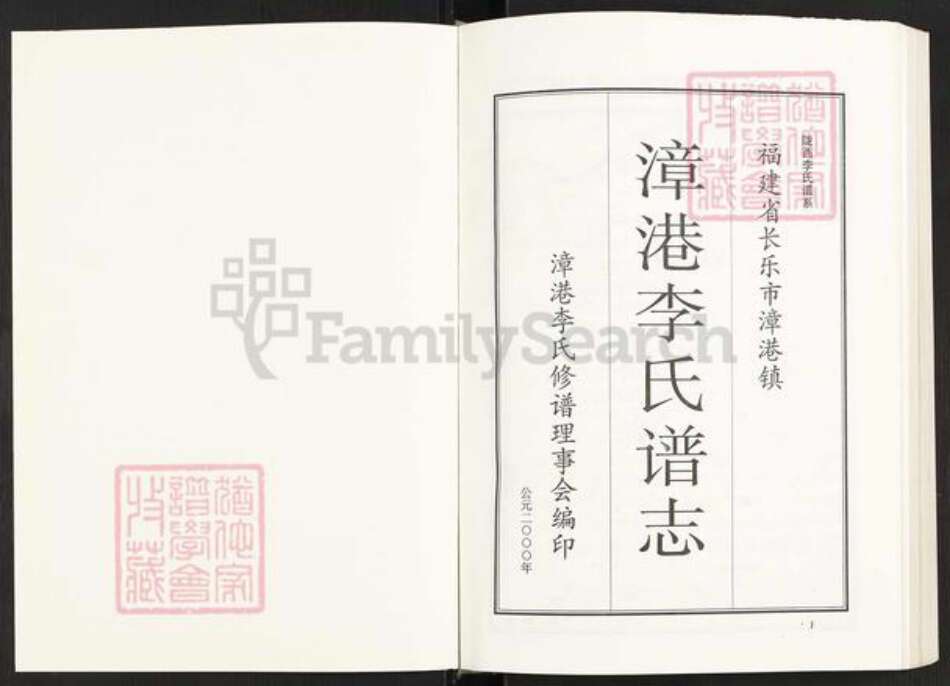 陇西李氏谱系
福建省长乐市漳港镇
漳港李氏谱志
漳港李氏修谱理事会编印
公元二〇〇〇年
· 1
FamilySearch
猶他家
譜學會
收藏
猶他家
譜學會
收藏